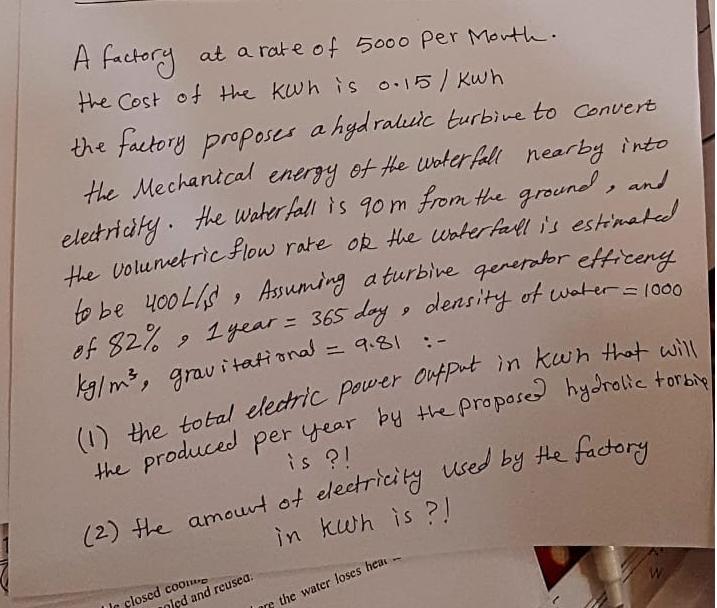 A factory at a rate of 5000 per Month.
the cost of the kwh is 0.15 / kwh
the factory proposes a hydraluic turbine to convert
the Mechanical energy of the waterfall nearby into
electricity. the waterfall is 90m from the ground, and
the volumetric flow rate ok the waterfall is estimated
to be 400L/s, Assuming a turbine generator efficeny
of 82%, 1 year = 365 day, density of water = 1000
kg/m³, gravitational = 9.81 :-
(1) the total electric power output in kwh that will
the produced per year by the proposed hydrolic torbine
is ?!
(2) the amount of electricity used by the factory
in kwh is ?!
closed cooling
and reused.
the water loses heat
W